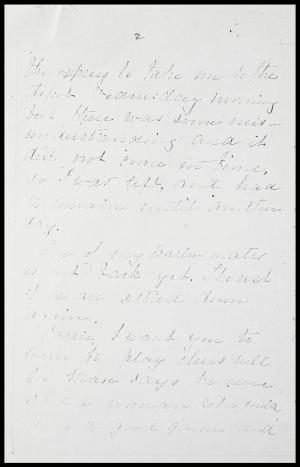 2
the express to take me to the
depot Wednesday morning
but there was some mis-
understanding and it
did not come in time,
so I was left, and had
to remain until another
day.
One of my room mates
is not back yet. The rest
of us are settled down
again.
I want you to
learn to play chess well
for says he never
a woman who could
play a good game and